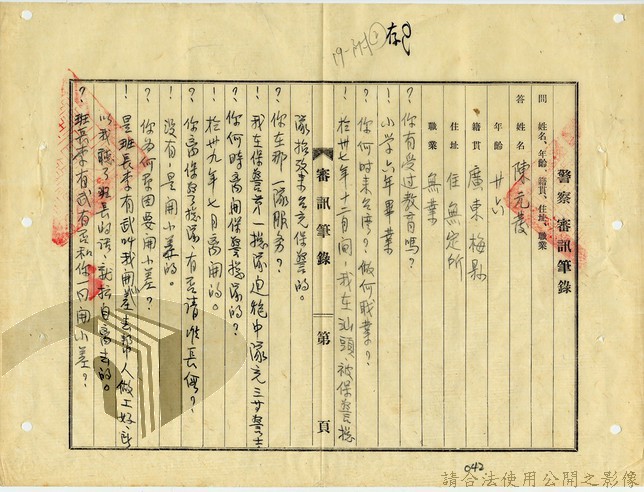 存
19-附
警察審訊筆錄
問 姓名、年齡、籍貫、住址、職業
答 姓名 陳元發
年齡 廿六
籍貫 廣東梅縣
住址 住無定所
職業 無業
？你有受过教育嗎？
！小学六年畢業
？你何时来台湾？做何职業？
！於卅七年十二月间，我在汕頭被保警總
隊招致来台充保警的。
？你在那一隊服务？
！我在保警第一總隊迫砲中隊充三等警士
？你何時离開保警總隊的？
！於卅九年七月离開的。
？你离保了總隊，有否請准長假？
！没有，是用小差的。
？你為何原因要用小差？
！是班長李有武叫我開差去帮人做工好，所
以我聽了班長的話，就擅自离去的。
？班長李有武有否和你一同開小差？
審訊筆錄
第 頁
042
請合法使用公開之影像